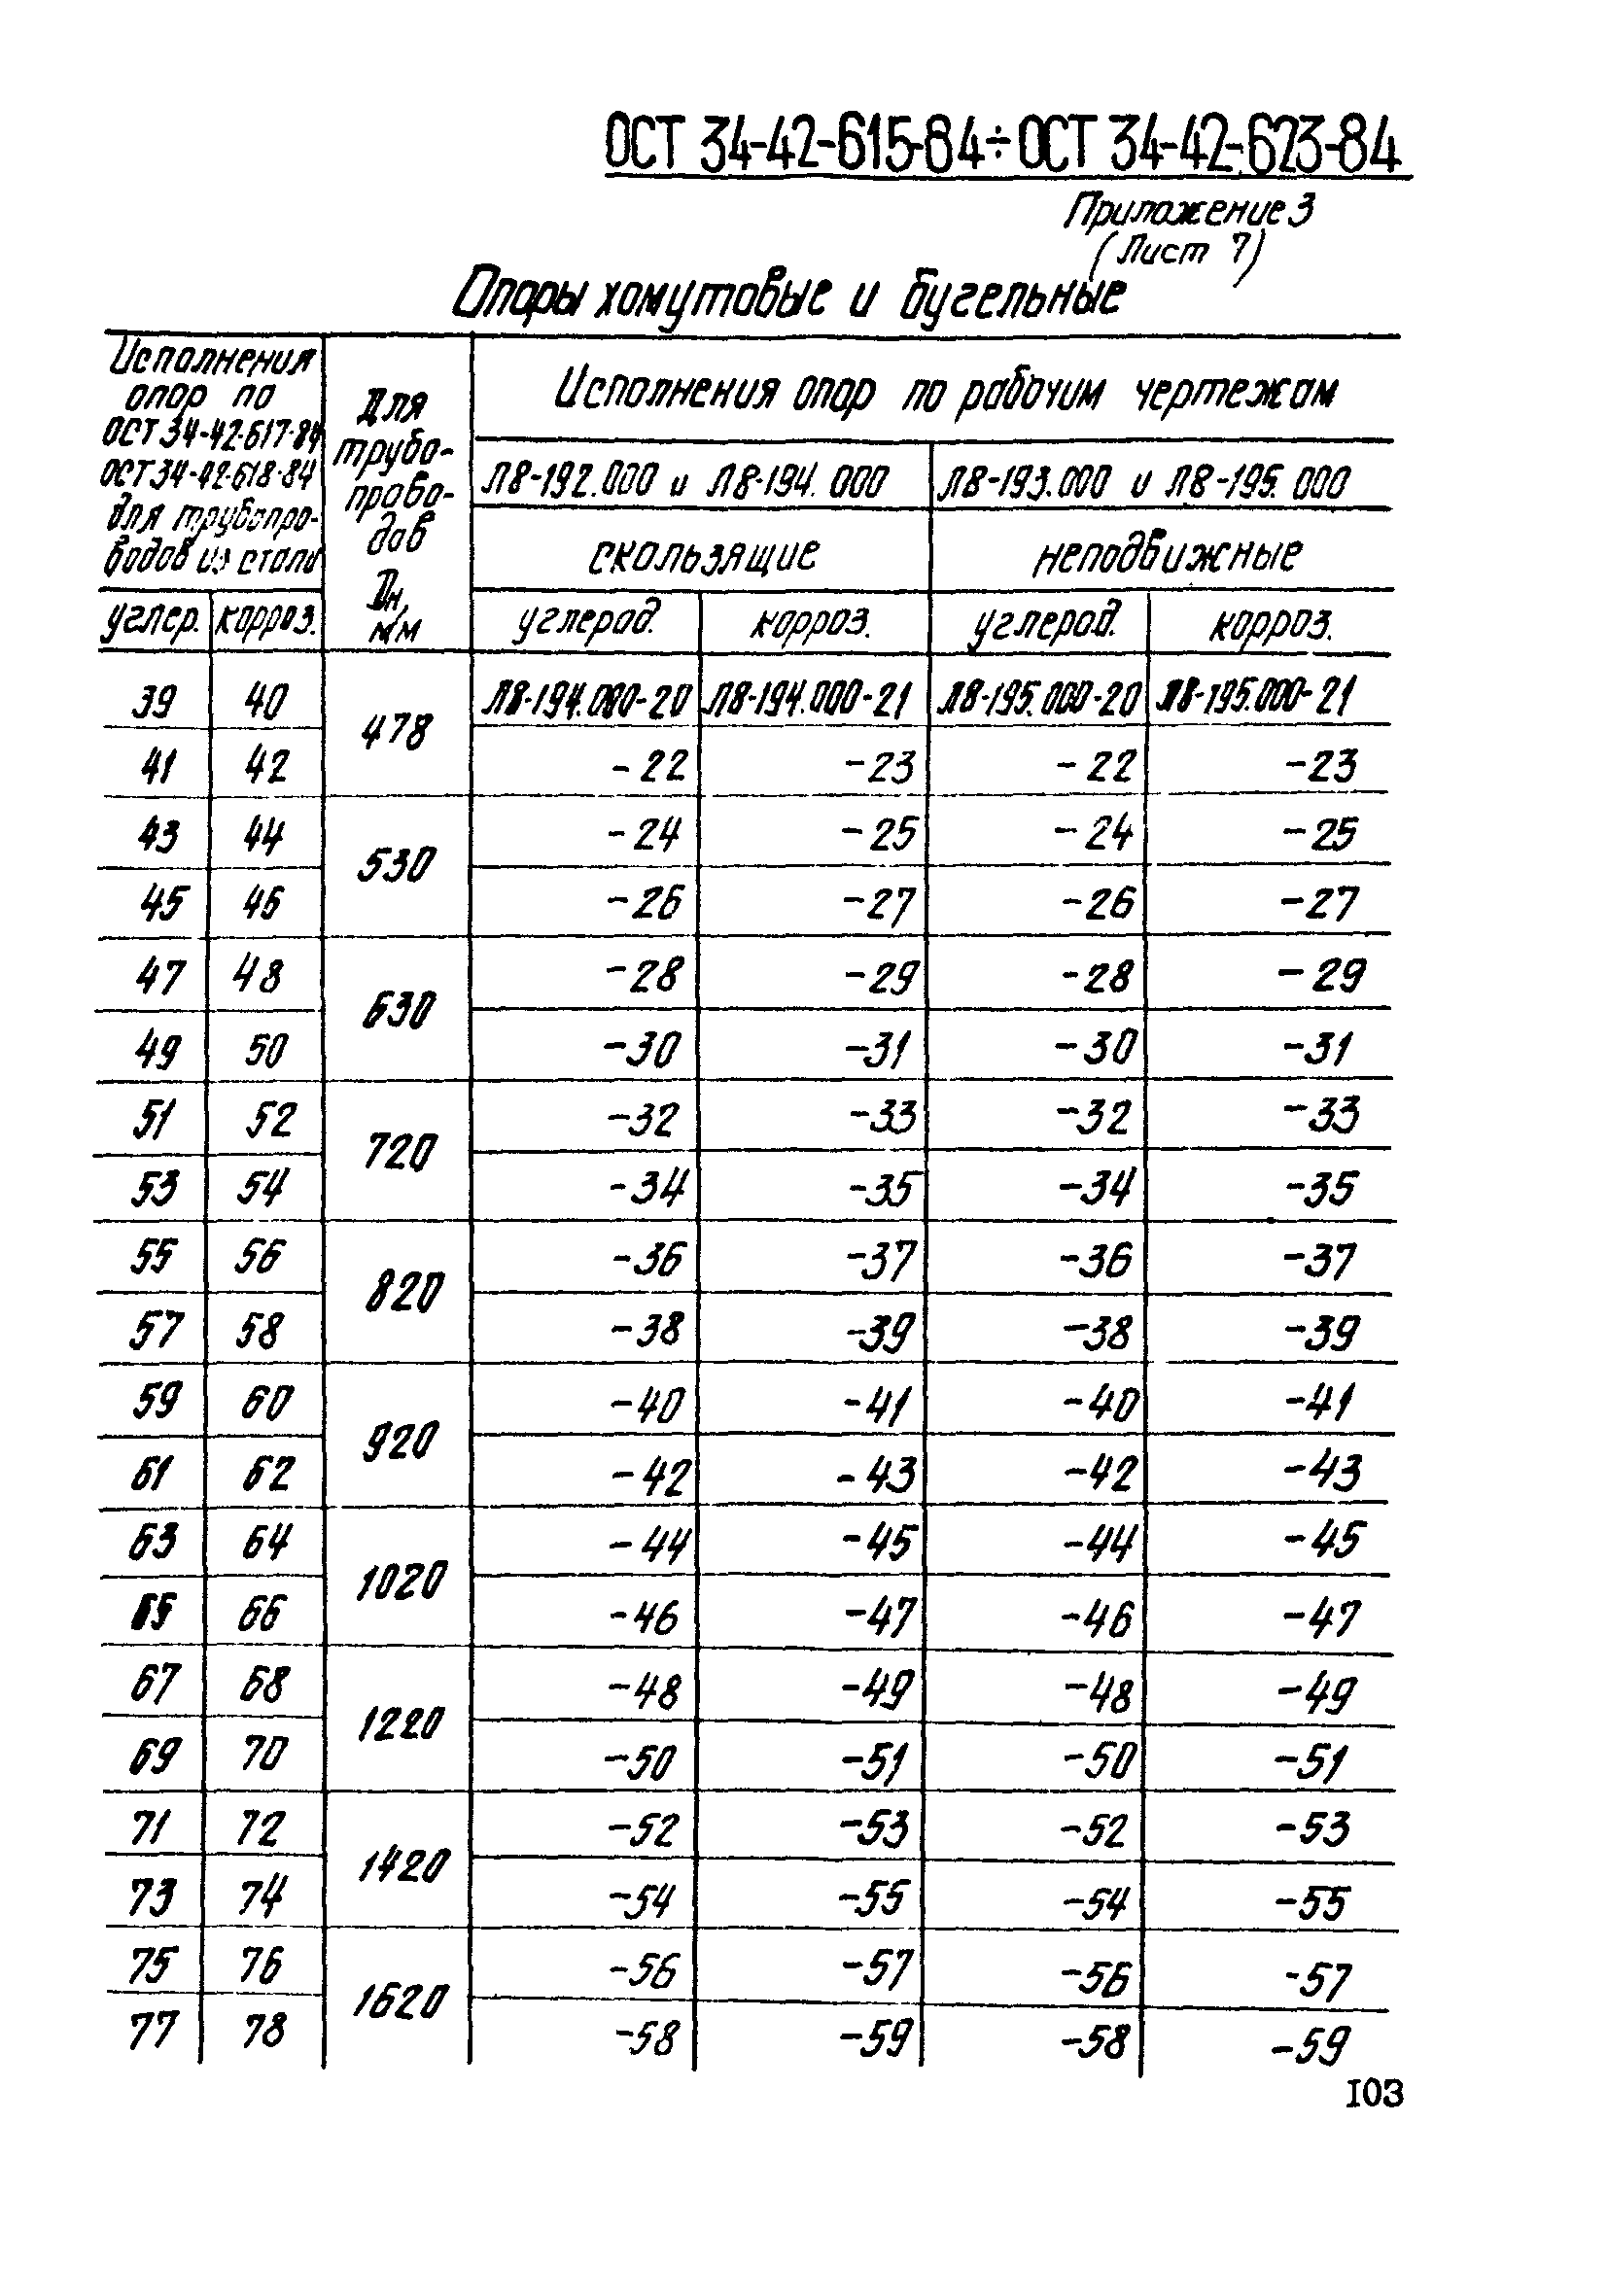 ОСТ 34-42-615-84÷ОСТ 34-42-623-84
Приложение 3
(Лист 7)
Опоры хомутовые и бугельные
Исполнения
опор по
ОСТ 34-42-617-84
ОСТ 34-42-618-84
для трубопро-
водов из стали
Для
трубо-
прово-
дов
Dн,
мм
Исполнения опор по рабочим чертежам
Л8-192.000 и Л8-194.000 Л8-193.000 и Л8-195.000
скользящие неподвижные
углер. корроз. углерод. корроз. углерод. корроз.
39 40 478 Л8-194.000-20 Л8-194.000-21 Л8-195.000-20 Л8-195.000-21
41 42 -22 -23 -22 -23
43 44 530 -24 -25 -24 -25
45 46 -26 -27 -26 -27
47 48 630 -28 -29 -28 -29
49 50 -30 -31 -30 -31
51 52 720 -32 -33 -32 -33
53 54 -34 -35 -34 -35
55 56 820 -36 -37 -36 -37
57 58 -38 -39 -38 -39
59 60 920 -40 -41 -40 -41
61 62 -42 -43 -42 -43
63 64 1020 -44 -45 -44 -45
65 66 -46 -47 -46 -47
67 68 1220 -48 -49 -48 -49
69 70 -50 -51 -50 -51
71 72 1420 -52 -53 -52 -53
73 74 -54 -55 -54 -55
75 76 1620 -56 -57 -56 -57
77 78 -58 -59 -58 -59
103